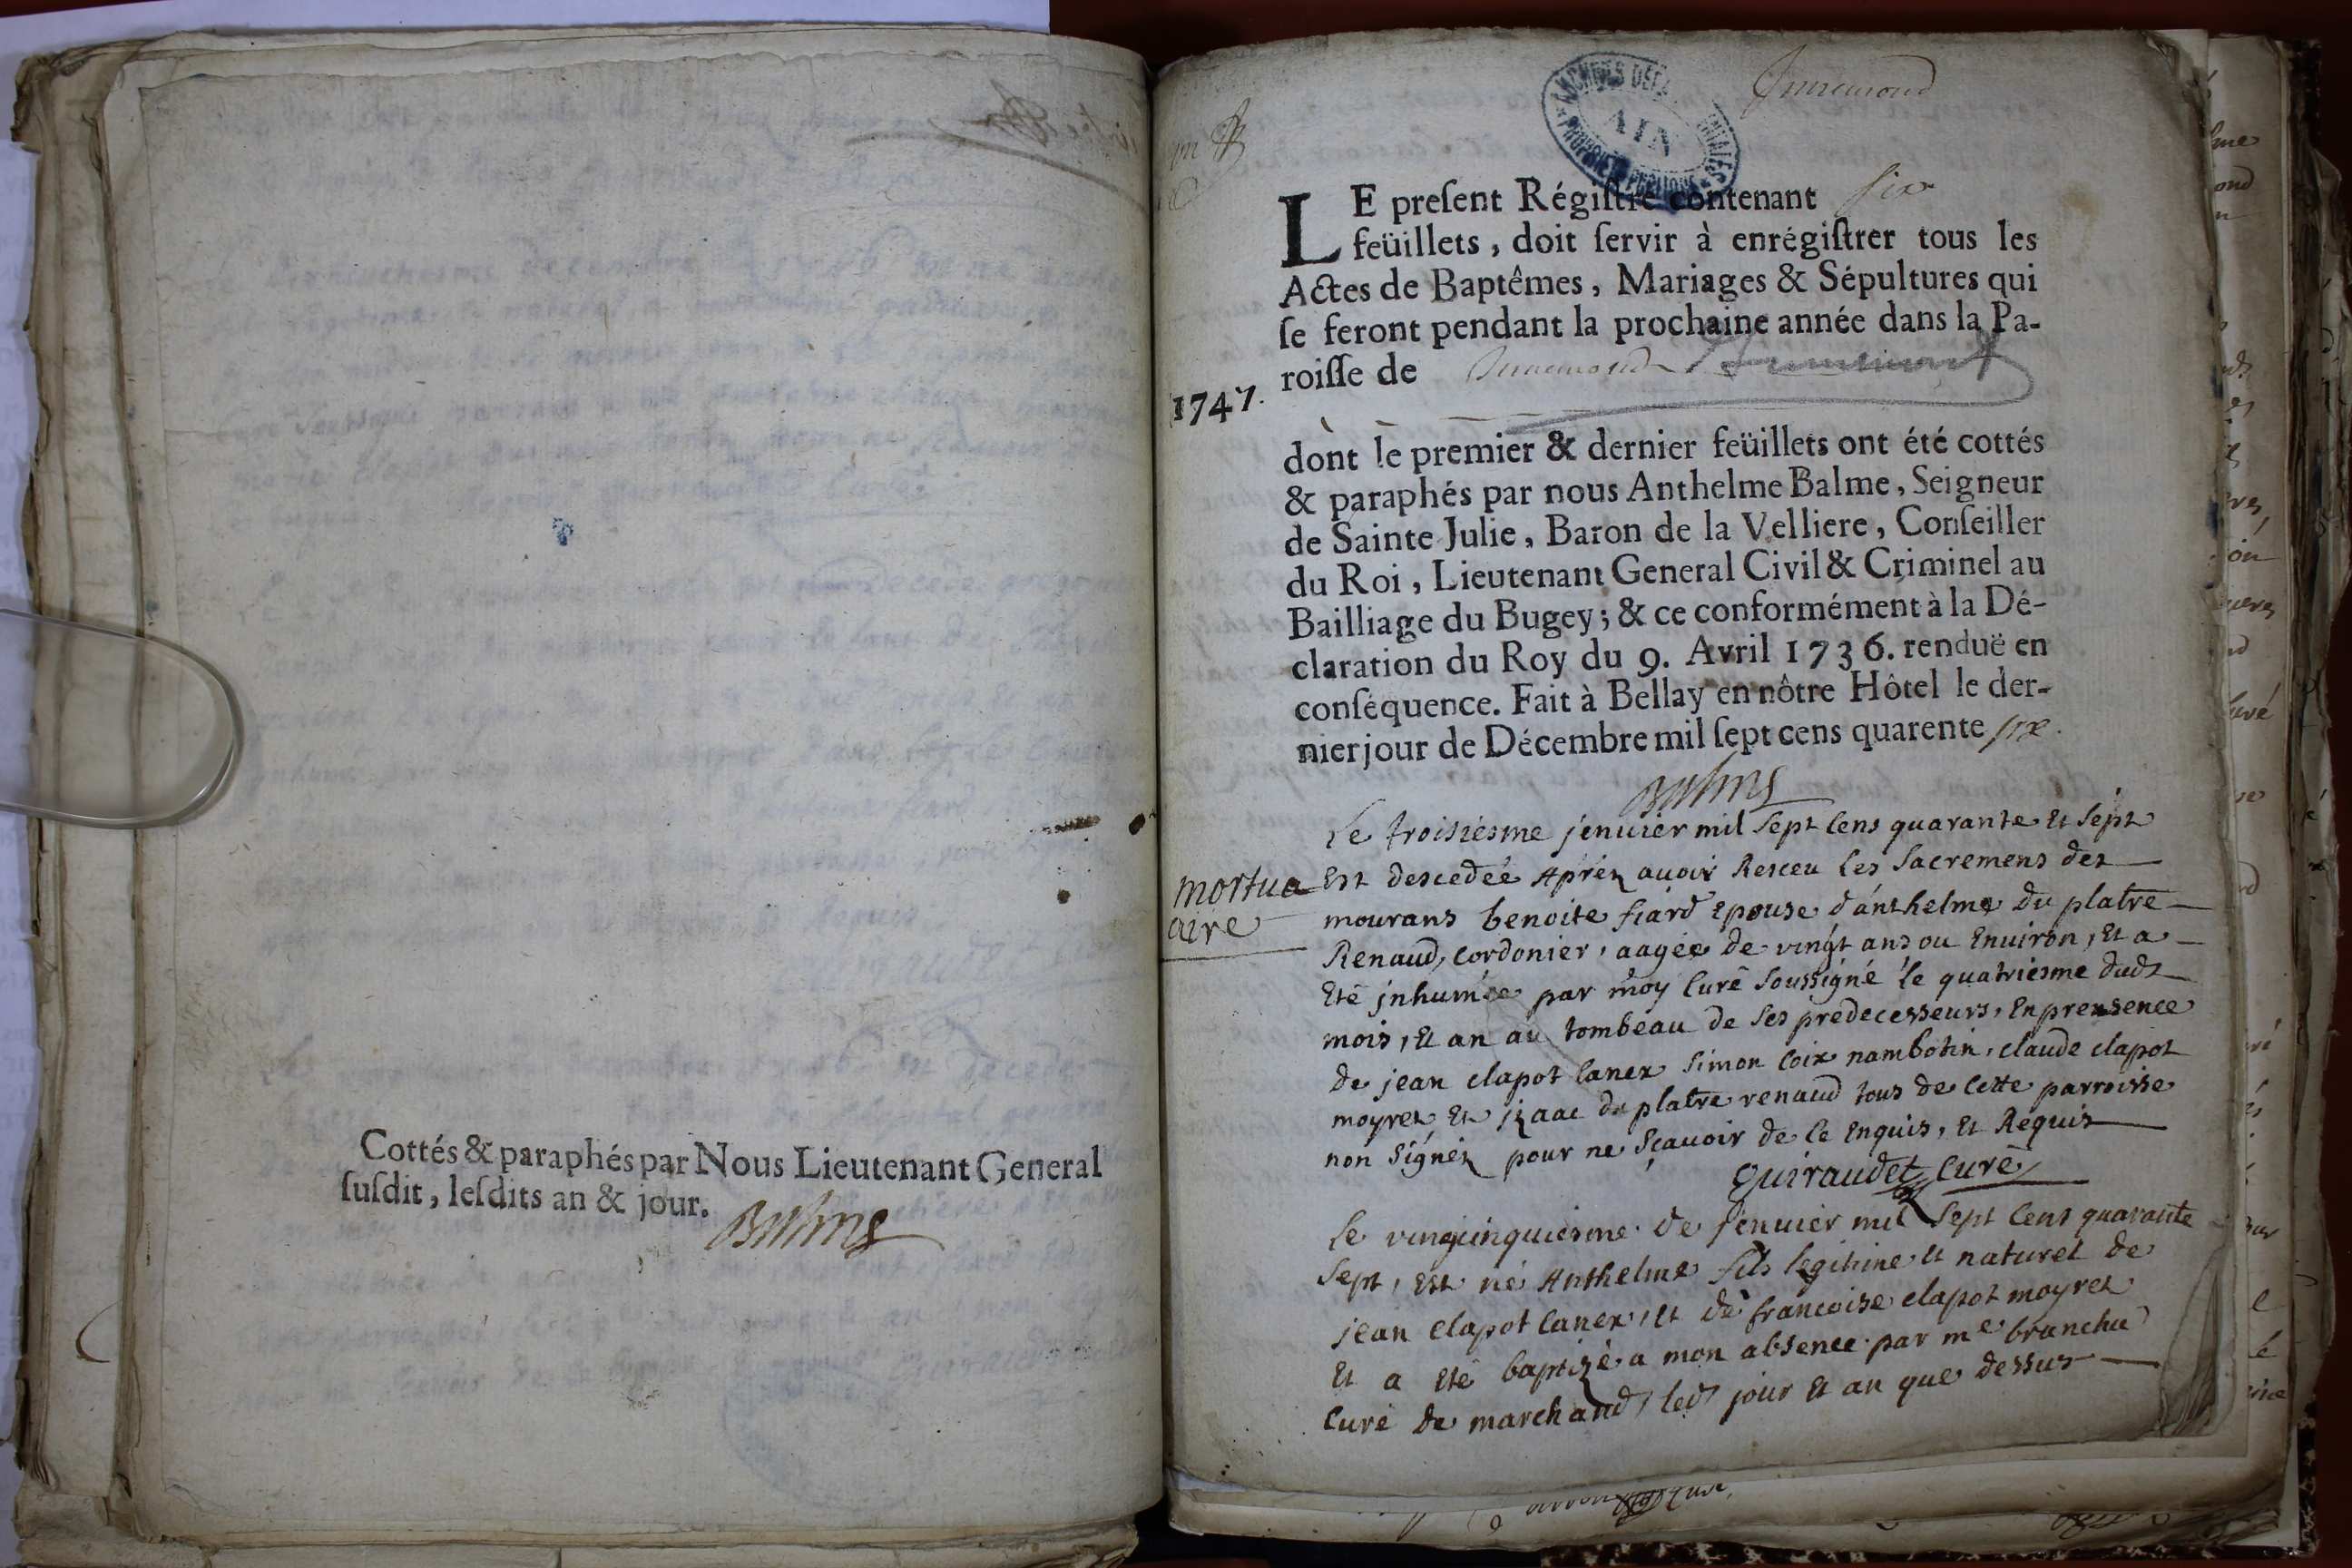 Cottés & paraphés par Nous Lieutenant General
ſuſdit, leſdits an & jour.
Balme
Innimond
ARCHIVES DÉPARTEMENTALES
AIN
PROPRIÉTÉ PUBLIQUE
LE preſent Régiſtre contenant six
feüillets, doit ſervir à enrégiſtrer tous les
Actes de Baptêmes, Mariages & Sépultures qui
ſe feront pendant la prochaine année dans la Pa-
roiſſe de Innimond
1747.
dont le premier & dernier feüillets ont été cottés
& paraphés par nous Anthelme Balme, Seigneur
de Sainte Julie, Baron de la Velliere, Conſeiller
du Roi, Lieutenant General Civil & Criminel au
Bailliage du Bugey; & ce conformément à la Dé-
claration du Roy du 9. Avril 1736. renduë en
conſéquence. Fait à Bellay en nôtre Hôtel le der-
nier jour de Décembre mil ſept cens quarente six.
Balme
mortua
aire
Le troisiesme jenuier mil sept cens quarante et sept
Est descedée Aprez auoir Resceu les sacremens des
mourans benoite fiard epouse d'anthelme du platre
Renaud, cordonier, aagée de vingt ans ou Enuiron, Et a
Eté jnhumée par moy curé soussigné le quatriesme dudt
mois, Et an au tombeau de ses predecesseurs, En prensence
de jean clapot canex simon coix nambotin, claude clapot
moyret Et jzaac du platre renaud tous de cette parroisse
non signéz pour ne sçauoir de ce Enquis, Et Requis
Guiraudet Curé
Le vingcinquiesme de jenuier mil sept cens quarante
sept, Est né Anthelme fils legitime et naturel de
jean clapot canex, et de francoise clapot moyret
Et a eté baptizé a mon absence par me branchu
curé de marchand, led jour et an que dessus